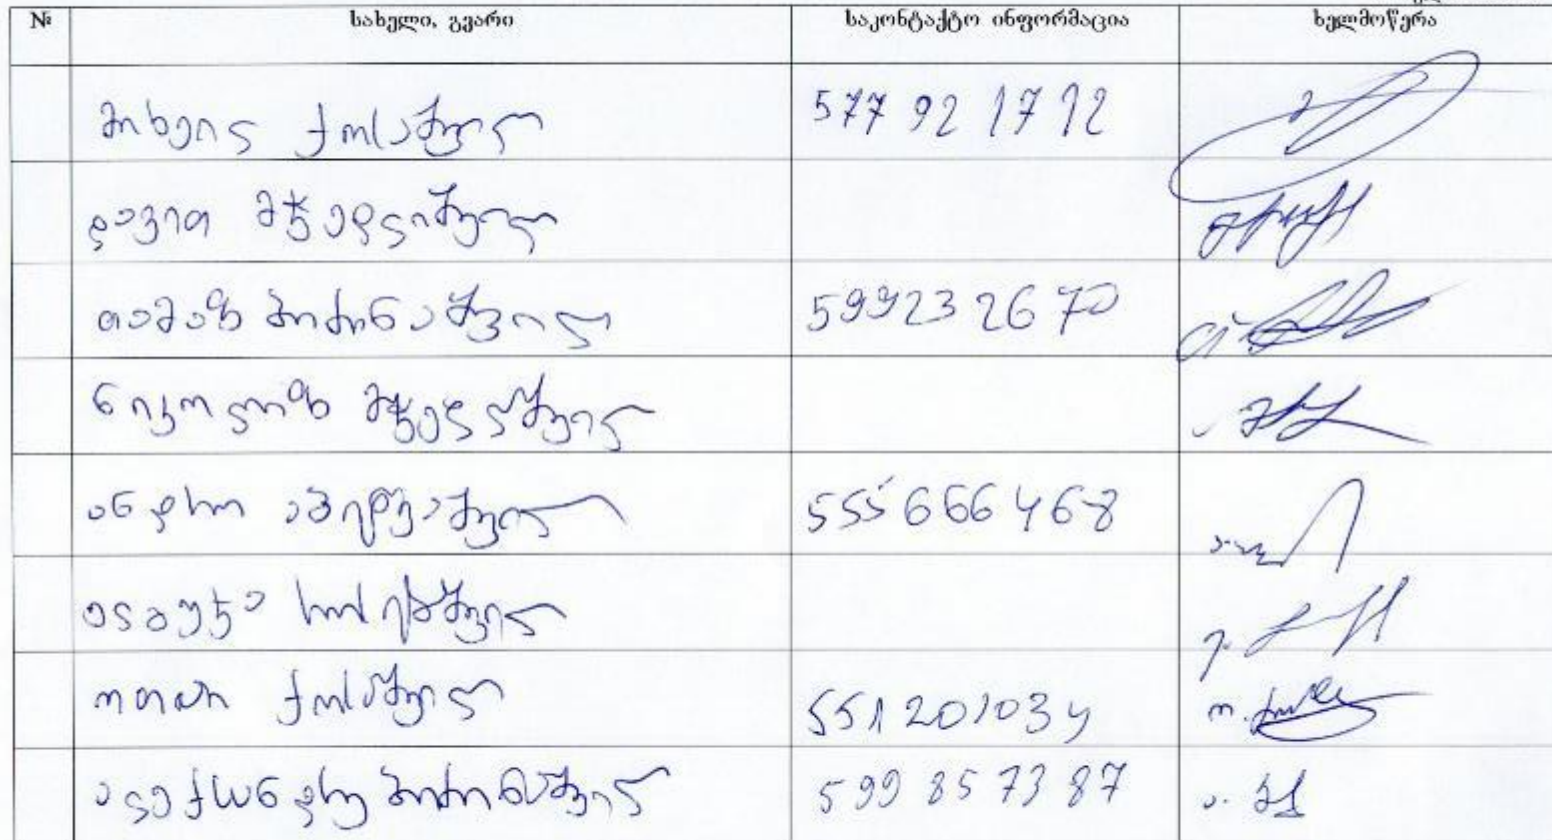 № სახელი, გვარი საკონტაქტო ინფორმაცია ხელმოწერა
მიხეილ ქოსაშვილი 577 92 17 12
დავით მჭედლიშვილი
თამაზ ბირინაშვილი 599232670
ნიკოლოზ მჭედლიშვილი
ანდრო 555666468
ოთარ ქოსაშვილი 551201034
ო.
ალექსანდრე ბირინაშვილი 599 85 73 87
ა.